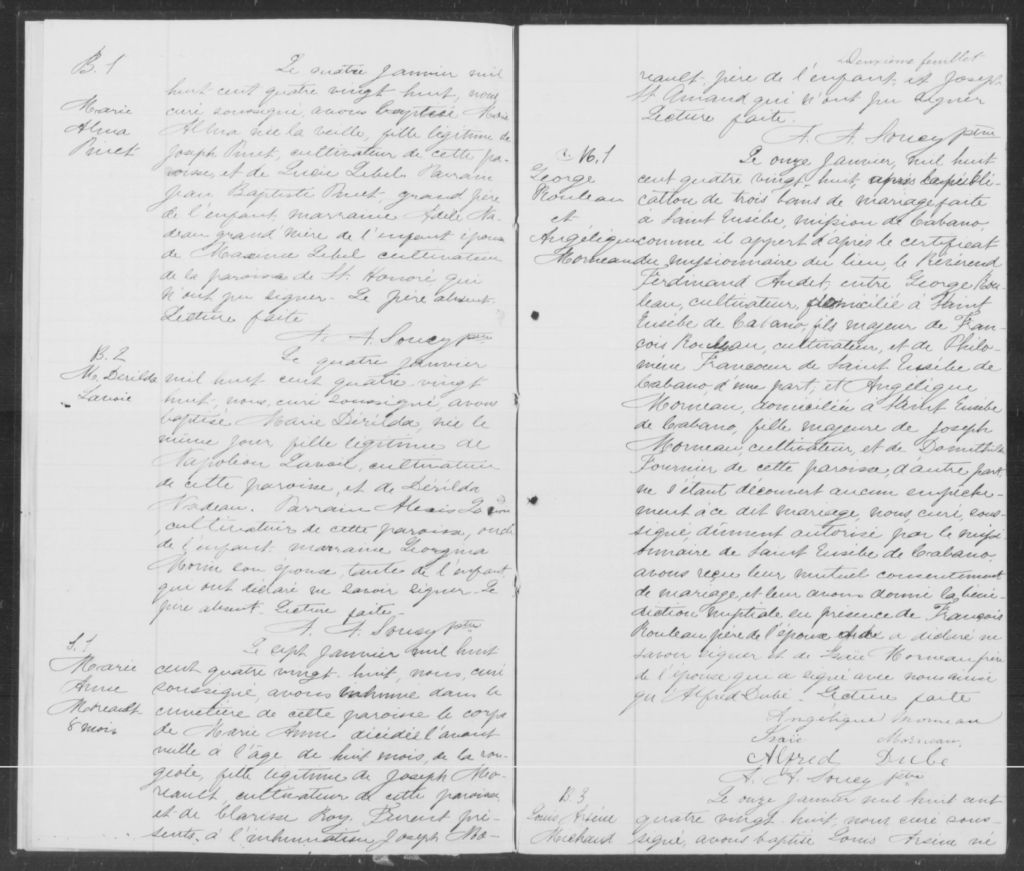 B. 1
Marie
Alma
Pinet
Le quatre Janvier mil
huit cent quatre vingt huit, nous,
curé soussigné, avons baptisé Marie
Alma née la veille, fille légitime de
Joseph Pinet, cultivateur de cette pa-
roisse, et de Lucie Lebel. Parrain
Jean Baptiste Pinet, grand père
de l'enfant, marraine Adèle Na-
deau grand'mère de l'enfant épouse
de Maxime Lebel cultivateur
de la paroisse de St. Honoré qui
n'ont pu signer. Le père absent.
Lecture faite
A. A. Soucy ptre
B. 2
M. Dérilda
Lavoie
Le quatre Janvier
mil huit cent quatre vingt
huit, nous, curé soussigné, avons
baptisé Marie Dérilda, née le
même jour fille légitime de
Napoléon Lavoie, cultivateur
de cette paroisse, et de Dérilda
Nadeau. Parrain Alexis
cultivateur de cette paroisse, oncle
de l'enfant marraine Georgina
Morin son épouse, tante de l'enfant
qui ont déclaré ne savoir signer. Le
père absent. Lecture faite.
A. A. Soucy ptre
S. 1
Marie
Anne
Moreault
8 mois
Le sept Janvier mil huit
cent quatre vingt huit, nous, curé
soussigné, avons inhumé dans le
cimetière de cette paroisse le corps
de Marie Anne décédée l'avant
veille à l'âge de huit mois, de la rou-
geole, fille légitime de Joseph Mo-
reault, cultivateur de cette paroisse
et de Clarisse Roy. Furent pré-
sents à l'inhumation Joseph Mo-
Deuxième feuillet
reault, père de l'enfant, et Joseph
St. Amand qui n'ont pu signer
Lecture faite
A. A. Soucy ptre
M. 1
George
Rouleau
et
Angélique
Morneau
Le onze Janvier, mil huit
cent quatre vingt huit, après la publi-
cation de trois bans de mariage faite
à Saint Eusèbe, mission de Cabano,
comme il appert d'après le certificat
du missionnaire du lieu, le Révérend
Ferdinand Audet, entre George Rou-
leau, cultivateur, domicilié à Saint
Eusèbe de Cabano, fils majeur de Fran-
çois Rouleau, cultivateur, et de Philo-
mène Francoeur de Saint Eusèbe de
Cabano, d'une part, et Angélique
Morneau, domiciliée à Saint Eusèbe
de Cabano, fille majeure de Joseph
Morneau, cultivateur, et de Domithilde
Fournier de cette paroisse, d'autre part,
ne s'étant découvert aucun empêche-
ment à ce dit mariage, nous, curé, sous-
signé, dûment autorisé par le mis-
sionnaire de Saint Eusèbe de Cabano
avons reçu leur mutuel consentement
de mariage, et leur avons donné la béné-
diction nuptiale en présence de François
Rouleau père de l'époux a déclaré ne
savoir signer et de Morneau frère
de l'épouse qui a signé avec nous ainsi
qu'Alfred Dubé. Lecture faite
Angélique Morneau
Morneau
Alfred Dube
A. A. Soucy ptre
B. 3
Louis Arsène
Michaud
Le onze Janvier mil huit cent
quatre vingt huit, nous curé sous-
signé, avons baptisé Louis Arsène né